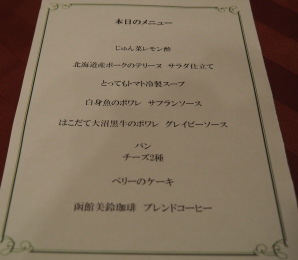 本日のメニュー
じゅん菜レモン酢
北海道産ポークのテリーヌ　サラダ仕立て
とってもトマト冷製スープ
白身魚のポワレ　サフランソース
はこだて大沼黒牛のポワレ　グレイビーソース
パン
チーズ2種
ベリーのケーキ
函館美鈴珈琲　ブレンドコーヒー